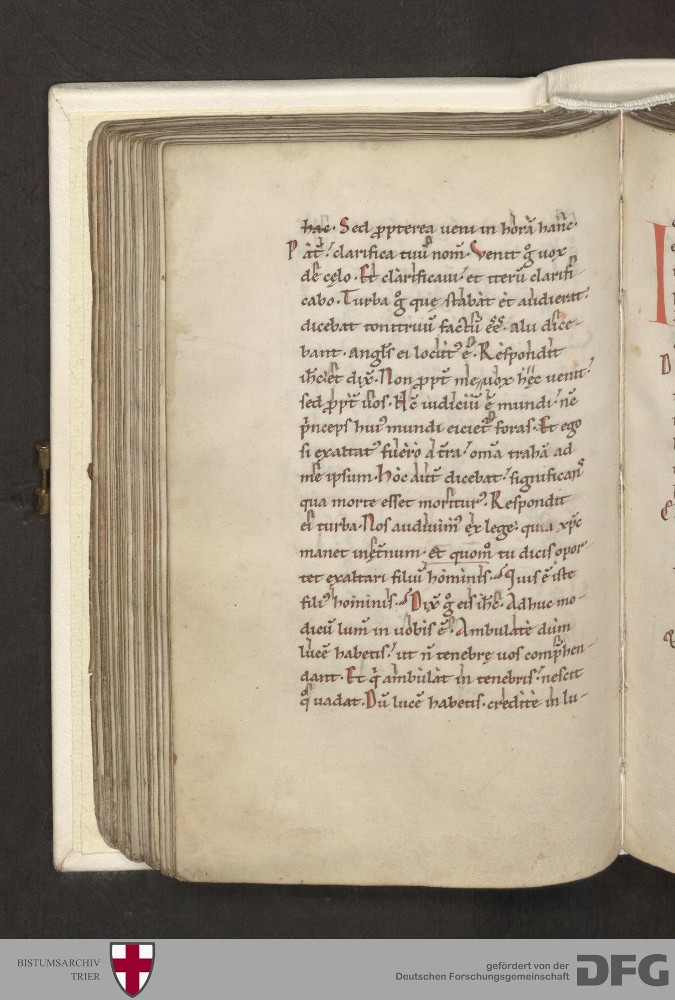 hac. Sed ꝓpterea ueni in horā hanc.
Pat̄. clarifica tuū nom̄. Venit g̊ uox
de cęlo. Et clarificaui. et iterū clarifi
cabo. Turba g̊ que stabat et audierat.
dicebat tonitruū factū eē. alii dice-
bant. angl̄s ei locut᷒ ē. Respondit
ih̄c et dix̄. Non ꝓpt̄ me uox hęc uenit.
sed ꝓpt̄ uos. Nc̄ iudiciū ē mundi. nc̄
p̄nceps hui᷒ mundi eiciet̄ foras. Et ego
si exaltat᷒ fuero a t̄ra. om̄a trahā ad
me ipsum. Hoc aut̄ dicebat. significan̄
qua morte esset moritur᷒. Respondit
ei turba. Nos audiuim᷒ ex lege. quia xp̄c
manet inęt̄num. et quom̊ tu dicis opor-
tet exaltari filiū hominis. Quis ē iste
fili᷒ hominis. Dix̄ g̊ eis ih̄c. Adhuc mo-
dicū lum̄ in uobis ē. Ambulate dum
lucē habetis. ut n̄ tenebrę uos comp̄hen-
dant. Et qⁱ ambulat in tenebris. nescit
q̊ uadat. Dū lucē habetis. credite in lu-
BISTUMSARCHIV
TRIER
gefördert von der
Deutschen Forschungsgemeinschaft
DFG